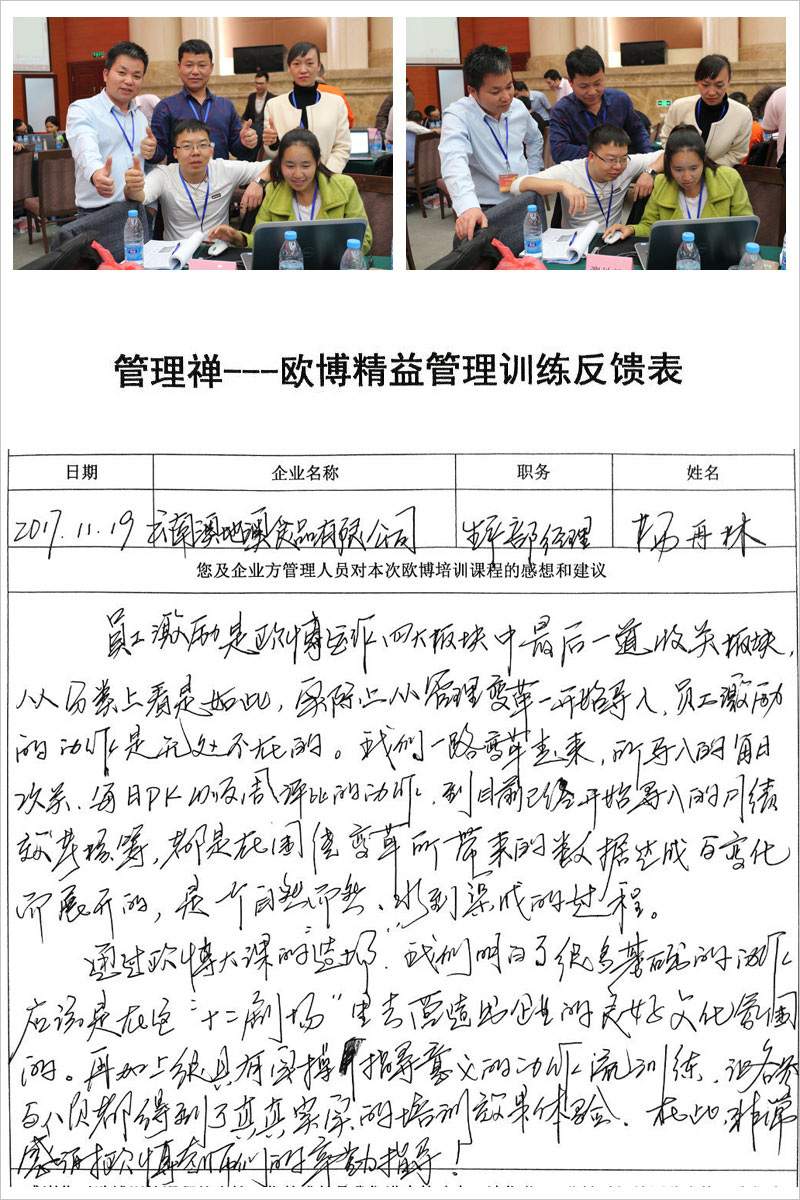 管理禅---欧博精益管理训练反馈表
日期 企业名称 职务 姓名
2017.11.19 云南澳地澳食品有限公司 生产部经理 杨丹林
您及企业方管理人员对本次欧博培训课程的感想和建议
员工激励是欧博运作四大板块中最后一道收关板块,
从分类上看是如此,实际上从管理变革一开始导入,员工激励
的动作是无处不在的。我们一路变革走来,所导入的每日
攻关、每日PK以及周评比的动作,到目前已经开始导入的月绩
效考核等,都是在围绕变革所带来的数据达成与变化
而展开的,是一个自然而然、水到渠成的过程。
通过欧博大课的"造场",我们明白了很多基础的动作
应该是在这"十二剧场"里去营造出企业的良好文化氛围
的。再加上很具有实操指导意义的动作流训练,让各参
与人员都得到了真真实实的培训效果体验。在此,非常
感谢欧博老师们的辛勤指导!